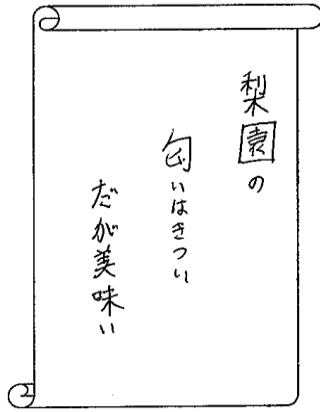 梨園の
匂いはきつい
だが美味い